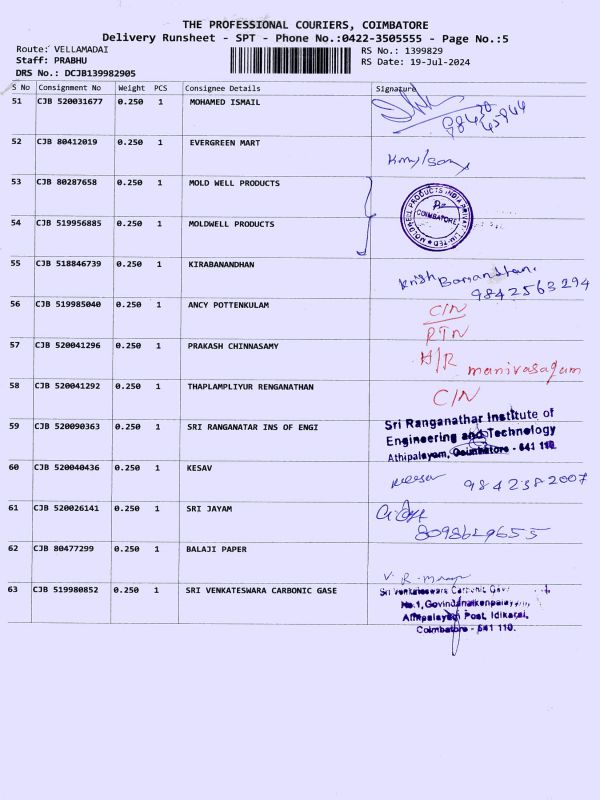 THE PROFESSIONAL COURIERS, COIMBATORE
Delivery Runsheet - SPT - Phone No.:0422-3505555 - Page No.:5
Route: VELLAMADAI RS No.: 1399829
Staff: PRABHU RS Date: 19-Jul-2024
DRS No.: DCJB139982905
S No Consignment No Weight PCS Consignee Details Signature
51 CJB 520031677 0.250 1 MOHAMED ISMAIL
52 CJB 80412019 0.250 1 EVERGREEN MART
53 CJB 80287658 0.250 1 MOLD WELL PRODUCTS
MOLDWELL PRODUCTS INDIA PRIVATE LIMITED
COIMBATORE
54 CJB 519956885 0.250 1 MOLDWELL PRODUCTS
55 CJB 518846739 0.250 1 KIRABANANDHAN
9842563294
56 CJB 519985040 0.250 1 ANCY POTTENKULAM C/N
RTN
57 CJB 520041296 0.250 1 PRAKASH CHINNASAMY H/R manivasagam
58 CJB 520041292 0.250 1 THAPLAMPLIYUR RENGANATHAN C/N
59 CJB 520090363 0.250 1 SRI RANGANATAR INS OF ENGI
Sri Ranganathar Institute of
Engineering and Technology
Athipalayam, Coimbatore - 641 110.
60 CJB 520040436 0.250 1 KESAV 9842382007
61 CJB 520026141 0.250 1 SRI JAYAM
8098629655
62 CJB 80477299 0.250 1 BALAJI PAPER
63 CJB 519980852 0.250 1 SRI VENKATESWARA CARBONIC GASE
Sri Venkateswara Carbonic
No.1, Govindanaikenpalayam,
Athipalayam Post, Idikarai,
Coimbatore - 641 110.